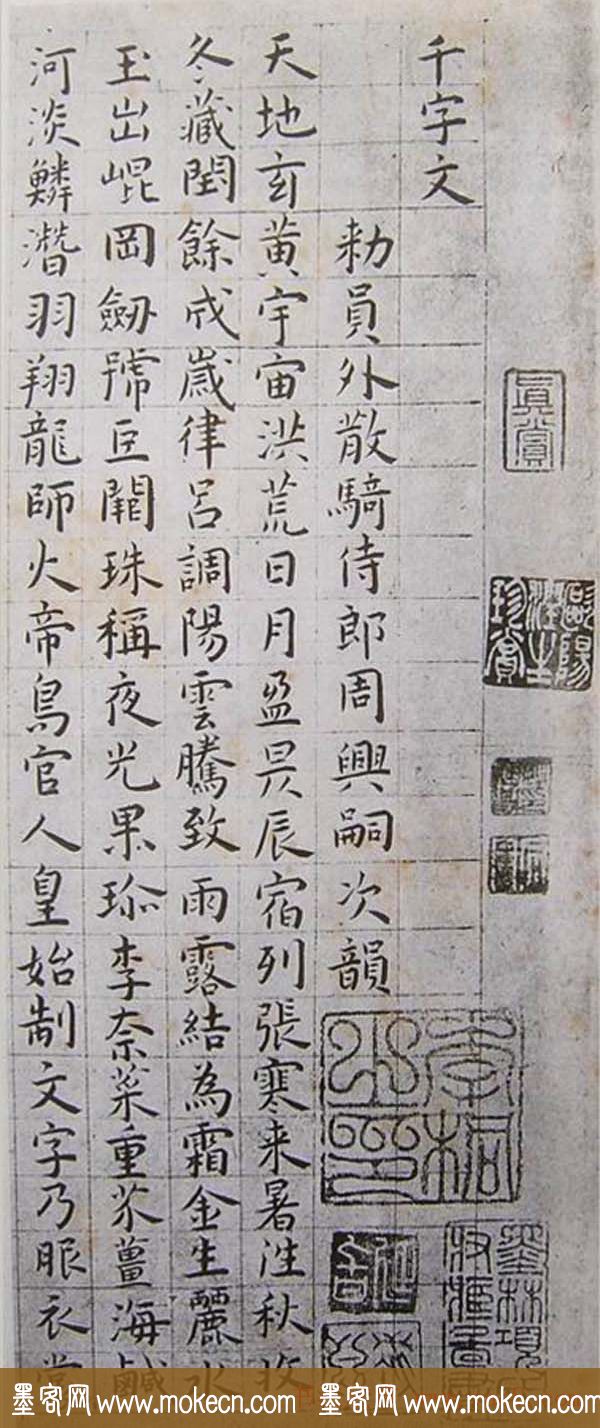 千字文
勑員外散騎侍郎周興嗣次韻
天地玄黃宇宙洪荒日月盈昃辰宿列張寒来暑往秋收
冬藏閏餘成歲律呂調陽雲騰致雨露結為霜金生麗水
玉出崐岡劒號巨闕珠稱夜光果珎李柰菜重芥薑海鹹
河淡鱗潛羽翔龍師火帝鳥官人皇始制文字乃服衣裳
真賞
墨客网 www.mokecn.com 墨客网 www.mokecn.com